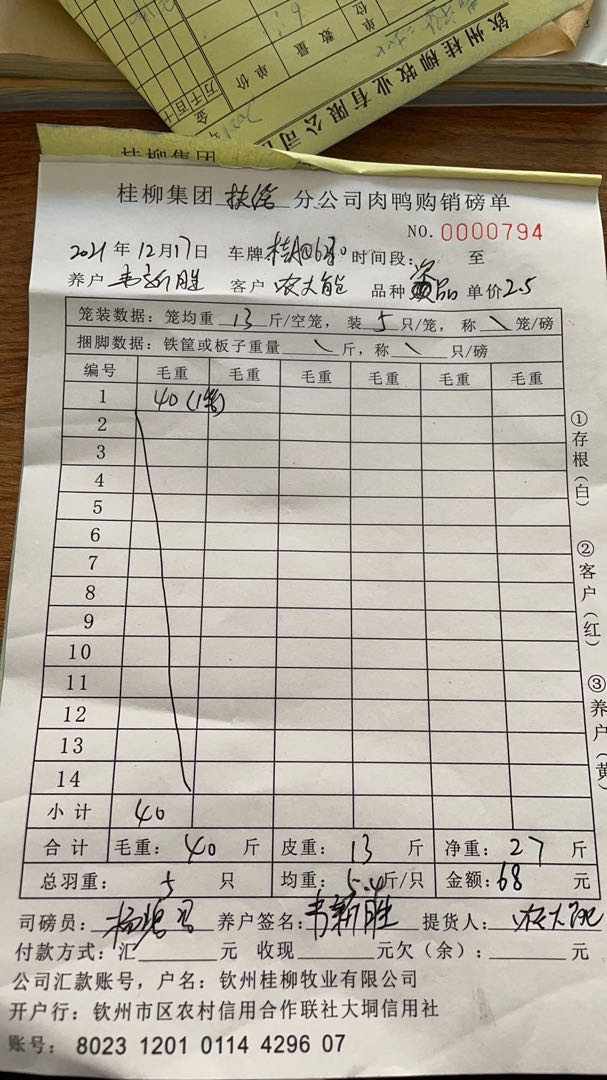 钦州桂柳牧业有限公司
单位
数量
单价
万千百十
桂柳集团
桂柳集团 分公司肉鸭购销磅单
NO. 0000794
2021年12月17日 车牌 时间段: 至
养户 韦新胜 客户 农大能 品种 品 单价 2.5
笼装数据:笼均重 13 斤/空笼,装 5 只/笼,称 \ 笼/磅
捆脚数据:铁筐或板子重量 \ 斤,称 \ 只/磅
编号 毛重 毛重 毛重 毛重 毛重 毛重
1 40 (1笼)
2
3
4
5
6
7
8
9
10
11
12
13
14
小计 40
合计 毛重: 40 斤 皮重: 13 斤 净重: 27 斤
总羽重: 5 只 均重: 5.4 斤/只 金额: 68 元
司磅员: 养户签名: 韦新胜 提货人: 农大能
付款方式:汇 元 收现 元欠(余): 元
公司汇款账号,户名:钦州桂柳牧业有限公司
开户行:钦州市区农村信用合作联社大垌信用社
账号: 8023 1201 0114 4296 07
①存根(白)
②客户(红)
③养户(黄)